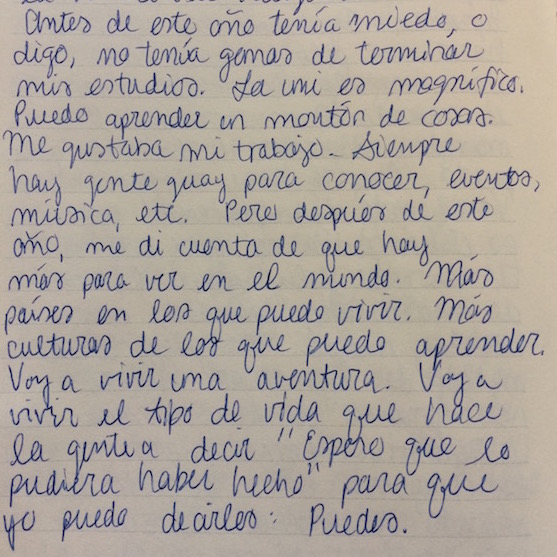 Antes de este año tenía miedo, o
digo, no tenía gomas de terminar
mis estudios. La uni es magnífica.
Puedo aprender un montón de cosas.
Me gustaba mi trabajo. Siempre
hay gente guay para conocer, eventos,
música, etc. Pero después de este
año, me di cuenta de que hay
más para ver en el mundo. Más
países en los que puedo vivir. Más
culturas de los que puedo aprender.
Voy a vivir una aventura. Voy a
vivir el tipo de vida que hace
la gente a decir "Espero que lo
pudiera haber hecho" para que
yo puedo decirles: Puedes.